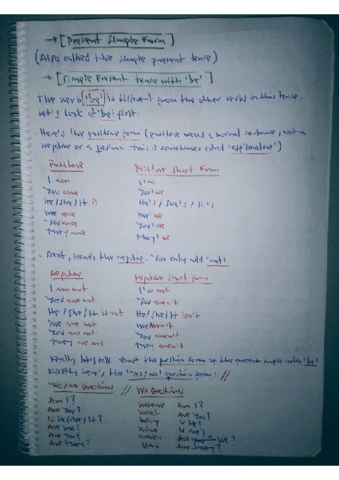 → [Present Simple Form]
(Also called the simple present tense)
→ [Simple Present tense with 'be']
The verb 'be' is different from the other verbs in this tense.
Let's look at 'be' first.
Here's the positive form (positive means a normal sentence, not a
negative or a question. This is sometimes called 'affirmative')
Positive Positive Short Form
I am I'm
You are You're
He/she/It is He's / She's / It's
We are We're
You are You're
They are They're
. Next, here's the negative. You only add 'not'
Negative Negative Short form
I am not I'm not
You are not You aren't
He / She / It is not He / She / It isn't
We are not We aren't
You are not You aren't
They are not They aren't
the question form of the present simple with 'be'
Firstly here's the 'Yes/no' question form: //
Yes/no Questions // Wh Questions
Am I? Where Am I?
Are You? What Are You?
Is He/she/It? Why Is He?
Are We? Who
Are You? When Are We?
Are they? How Are they?